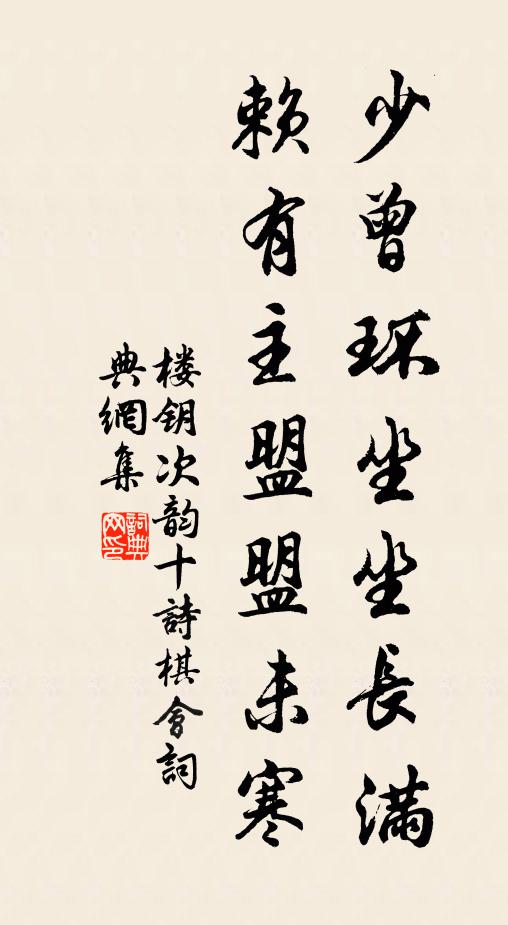 少曾环坐坐長滿
賴有主盟盟未寒
楼钥次韵十詩棋會詞
典網集
詞典网印